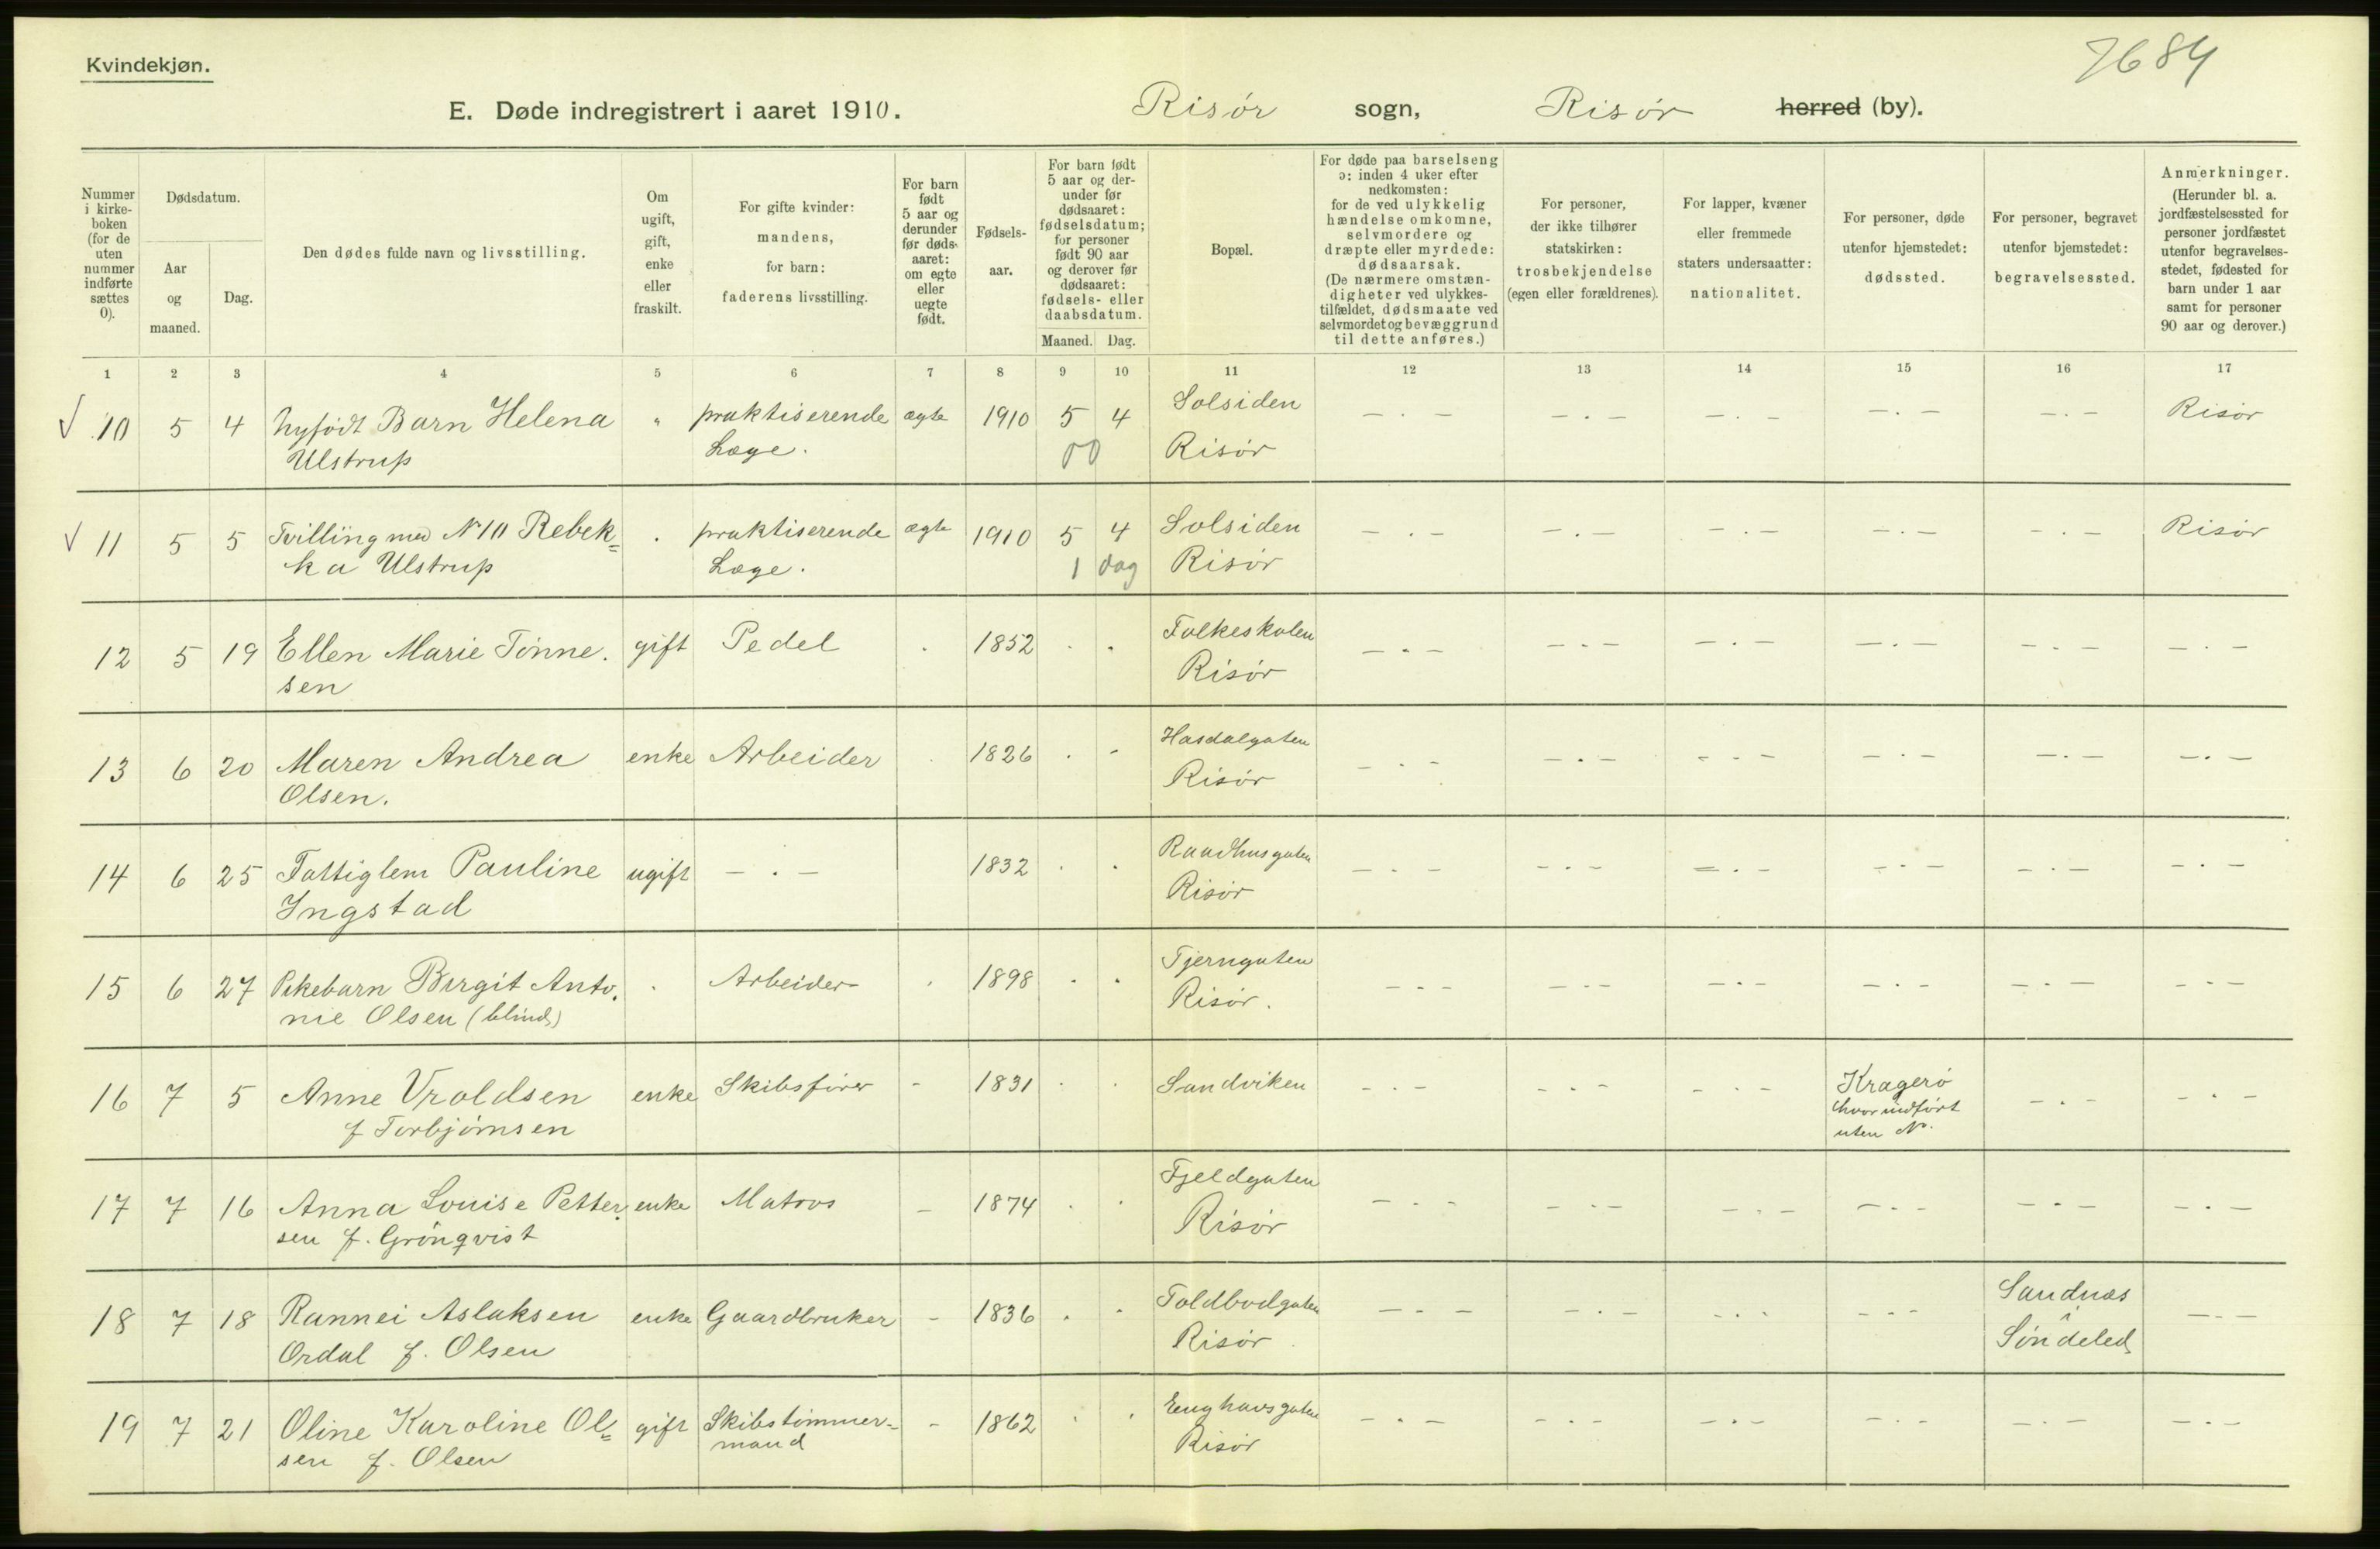 Kvindekjøn.
7684
E. Døde indregistrert i aaret 1910. Risør sogn, Risør herred (by).
Nummer i kirke-boken (for de uten nummer indførte sættes 0).
Dødsdatum.
Aar og maaned.
Dag.
Den dødes fulde navn og livsstilling.
Om ugift, gift, enke eller fraskilt.
For gifte kvinder: mandens, for barn: faderens livsstilling.
For barn født 5 aar og derunder før døds-aaret: om egte eller uegte født.
Fødsels-aar.
For barn født 5 aar og der-under før dødsaaret: fødselsdatum; for personer født 90 aar og derover før dødsaaret: fødsels- eller daabsdatum.
Maaned. Dag.
Bopæl.
For døde paa barselseng ɔ: inden 4 uker efter nedkomsten: for de ved ulykkelig hændelse omkomne, selvmordere og dræpte eller myrdede: dødsaarsak. (De nærmere omstæn-digheter ved ulykkes-tilfældet, dødsmaate ved selvmordet og bevæggrund til dette anføres.)
For personer, der ikke tilhører statskirken: trosbekjendelse (egen eller forældrenes).
For lapper, kvæner eller fremmede staters undersaatter: nationalitet.
For personer, døde utenfor hjemstedet: dødssted.
For personer, begravet utenfor hjemstedet: begravelsessted.
Anmerkninger. (Herunder bl. a. jordfæstelsessted for personer jordfæstet utenfor begravelses-stedet, fødested for barn under 1 aar samt for personer 90 aar og derover.)
1 2 3 4 5 6 7 8 9 10 11 12 13 14 15 16 17
√ 10 5 4 Nyfødt Barn Helena " praktiserende ægte 1910 5 4 Solsiden — . — — . — — . — — . — — . — Risør
Ulstrup Læge. 00 Risør
√ 11 5 5 Tvilling med No 10 Rebek= . praktiserende ægte 1910 5 4 Solsiden — . — — . — — . — — . — — . — Risør
ka Ulstrup Læge. 1 dag Risør
12 5 19 Ellen Marie Tønne. gift Pedel . 1852 . . Folkeskolen — . — — . — — . — — . — — . — — . —
sen Risør
13 6 20 Maren Andrea enke Arbeider . 1826 . . Hasdalgaten — . — — . — — . — — . — — . — — . —
Olsen. Risør
14 6 25 Fattiglem Pauline ugift — . — 1832 . . Raadhusgaten — . — — . — — . — — . — — . — — . —
Ingstad Risør
15 6 27 Pikebarn Birgit Anto. . Arbeider . 1898 . . Tjerngaten — . — — . — — . — — . — — . — — . —
nie Olsen (blind) Risør.
16 7 5 Anne Vroldsen enke Skibsfører - 1831 . . Sandviken — . — — . — — . — Kragerø — . — — . —
f Torbjørnsen hvor indført
uten No.
17 7 16 Anna Louise Petter. enke Matros - 1874 . . Fjeldgaten — . — — . — — . — — . — — . — — . —
sen f. Grönqvist Risør
18 7 18 Rannei Aslaksen enke Gaardbruker - 1836 . . Toldbodgaten — . — — . — — . — — . — Sandnæs — . —
Ordal f. Olsen Risør Søndeled
19 7 21 Oline Karoline Ol= gift Skibstømmer- - 1862 . . Enghavsgaten — . — — . — — . — — . — — . — — . —
sen f. Olsen mand Risør